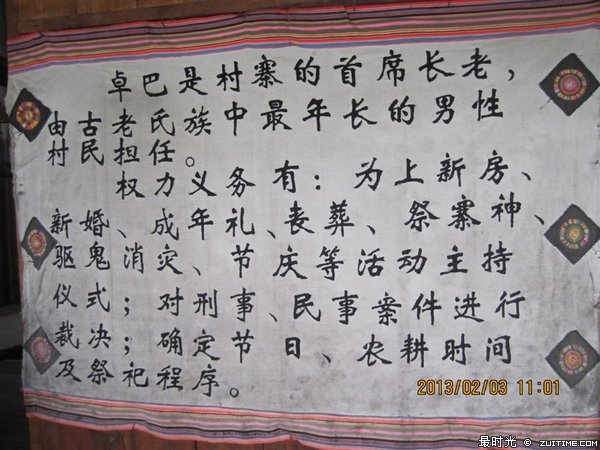 卓巴是村寨的首席长老，
由古老氏族中最年长的男性
村民担任。
权力义务有：为上新房、
新婚、成年礼、丧葬、祭寨神、
驱鬼消灾、节庆等活动主持
仪式；对刑事、民事案件进行
裁决；确定节日、农耕时间
及祭祀程序。
2013/02/03 11:01
最时光 © ZUITIME.COM